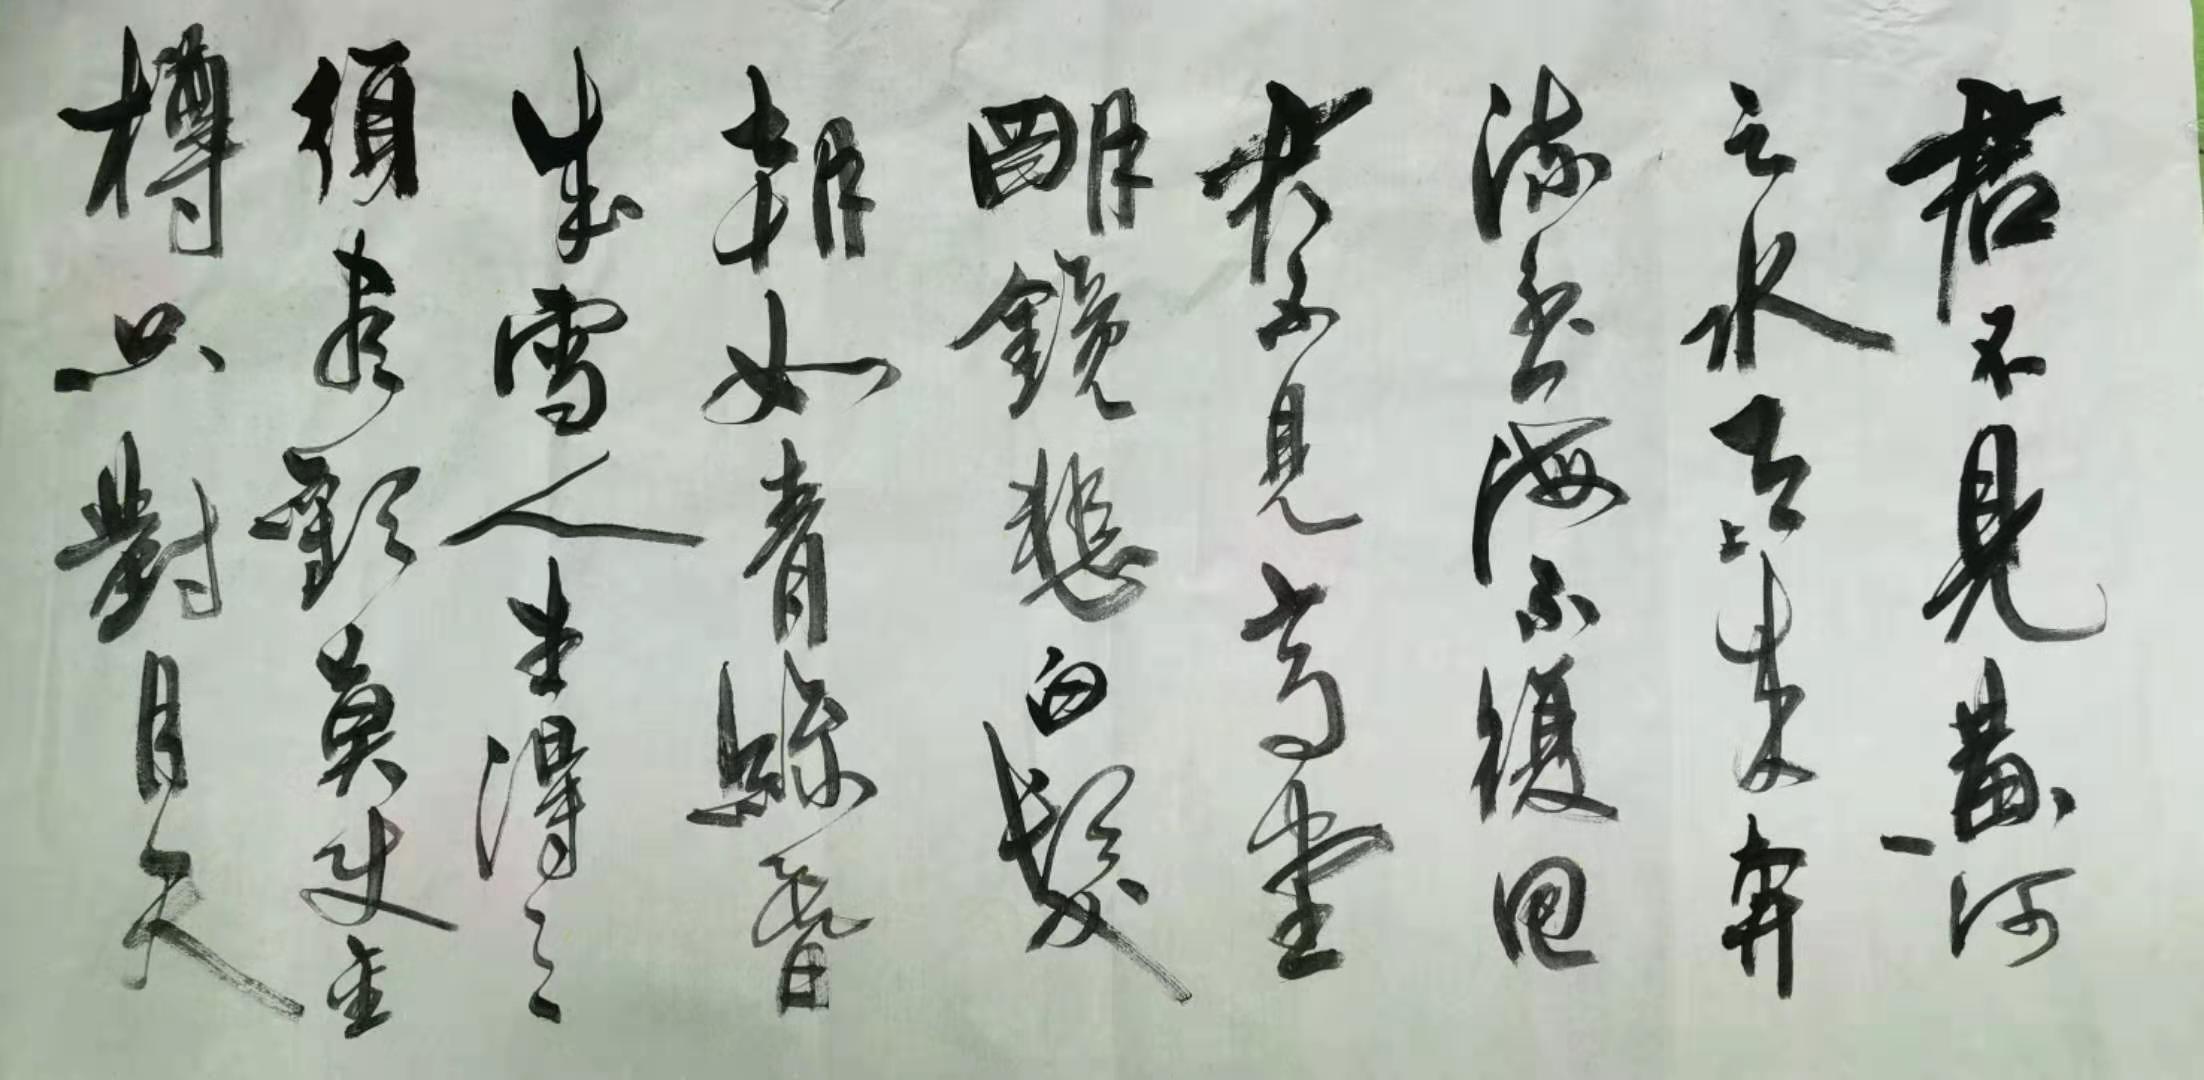 君不見黃河
之水天上来奔
流到海不復回
君不見高堂
明鏡悲白髮
朝如青絲暮
成雪人生得意
須盡歡莫使金
樽空對月天